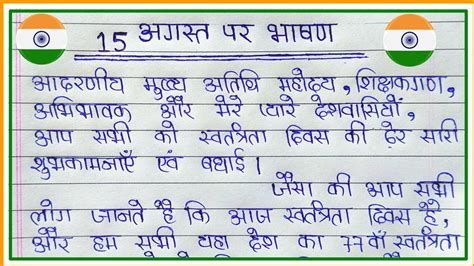 15 अगस्त पर भाषण
आदरणीय मुख्य अतिथि महोदय, शिक्षकगण,
अभिभावक और मेरे प्यारे देशवासियों,
आप सभी को स्वतंत्रता दिवस की ढेर सारी
शुभकामनाएँ एवं बधाई।
जैसा की आप सभी
लोग जानते है कि आज स्वतंत्रता दिवस है,
और हम सभी यहा देश का 77वाँ स्वतंत्रता